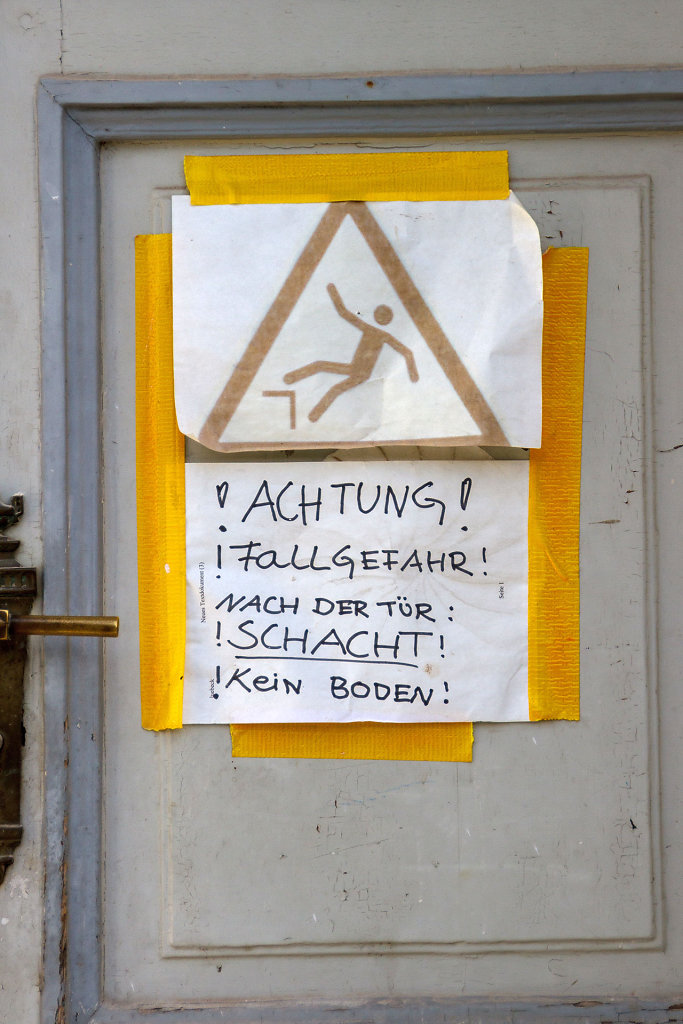 ! ACHTUNG!
! FaLLGEFAHR!
NACH DER TÜR:
! SCHACHT!
! KeiN BODEN!
Neues Textdokument (3)
Seite 1